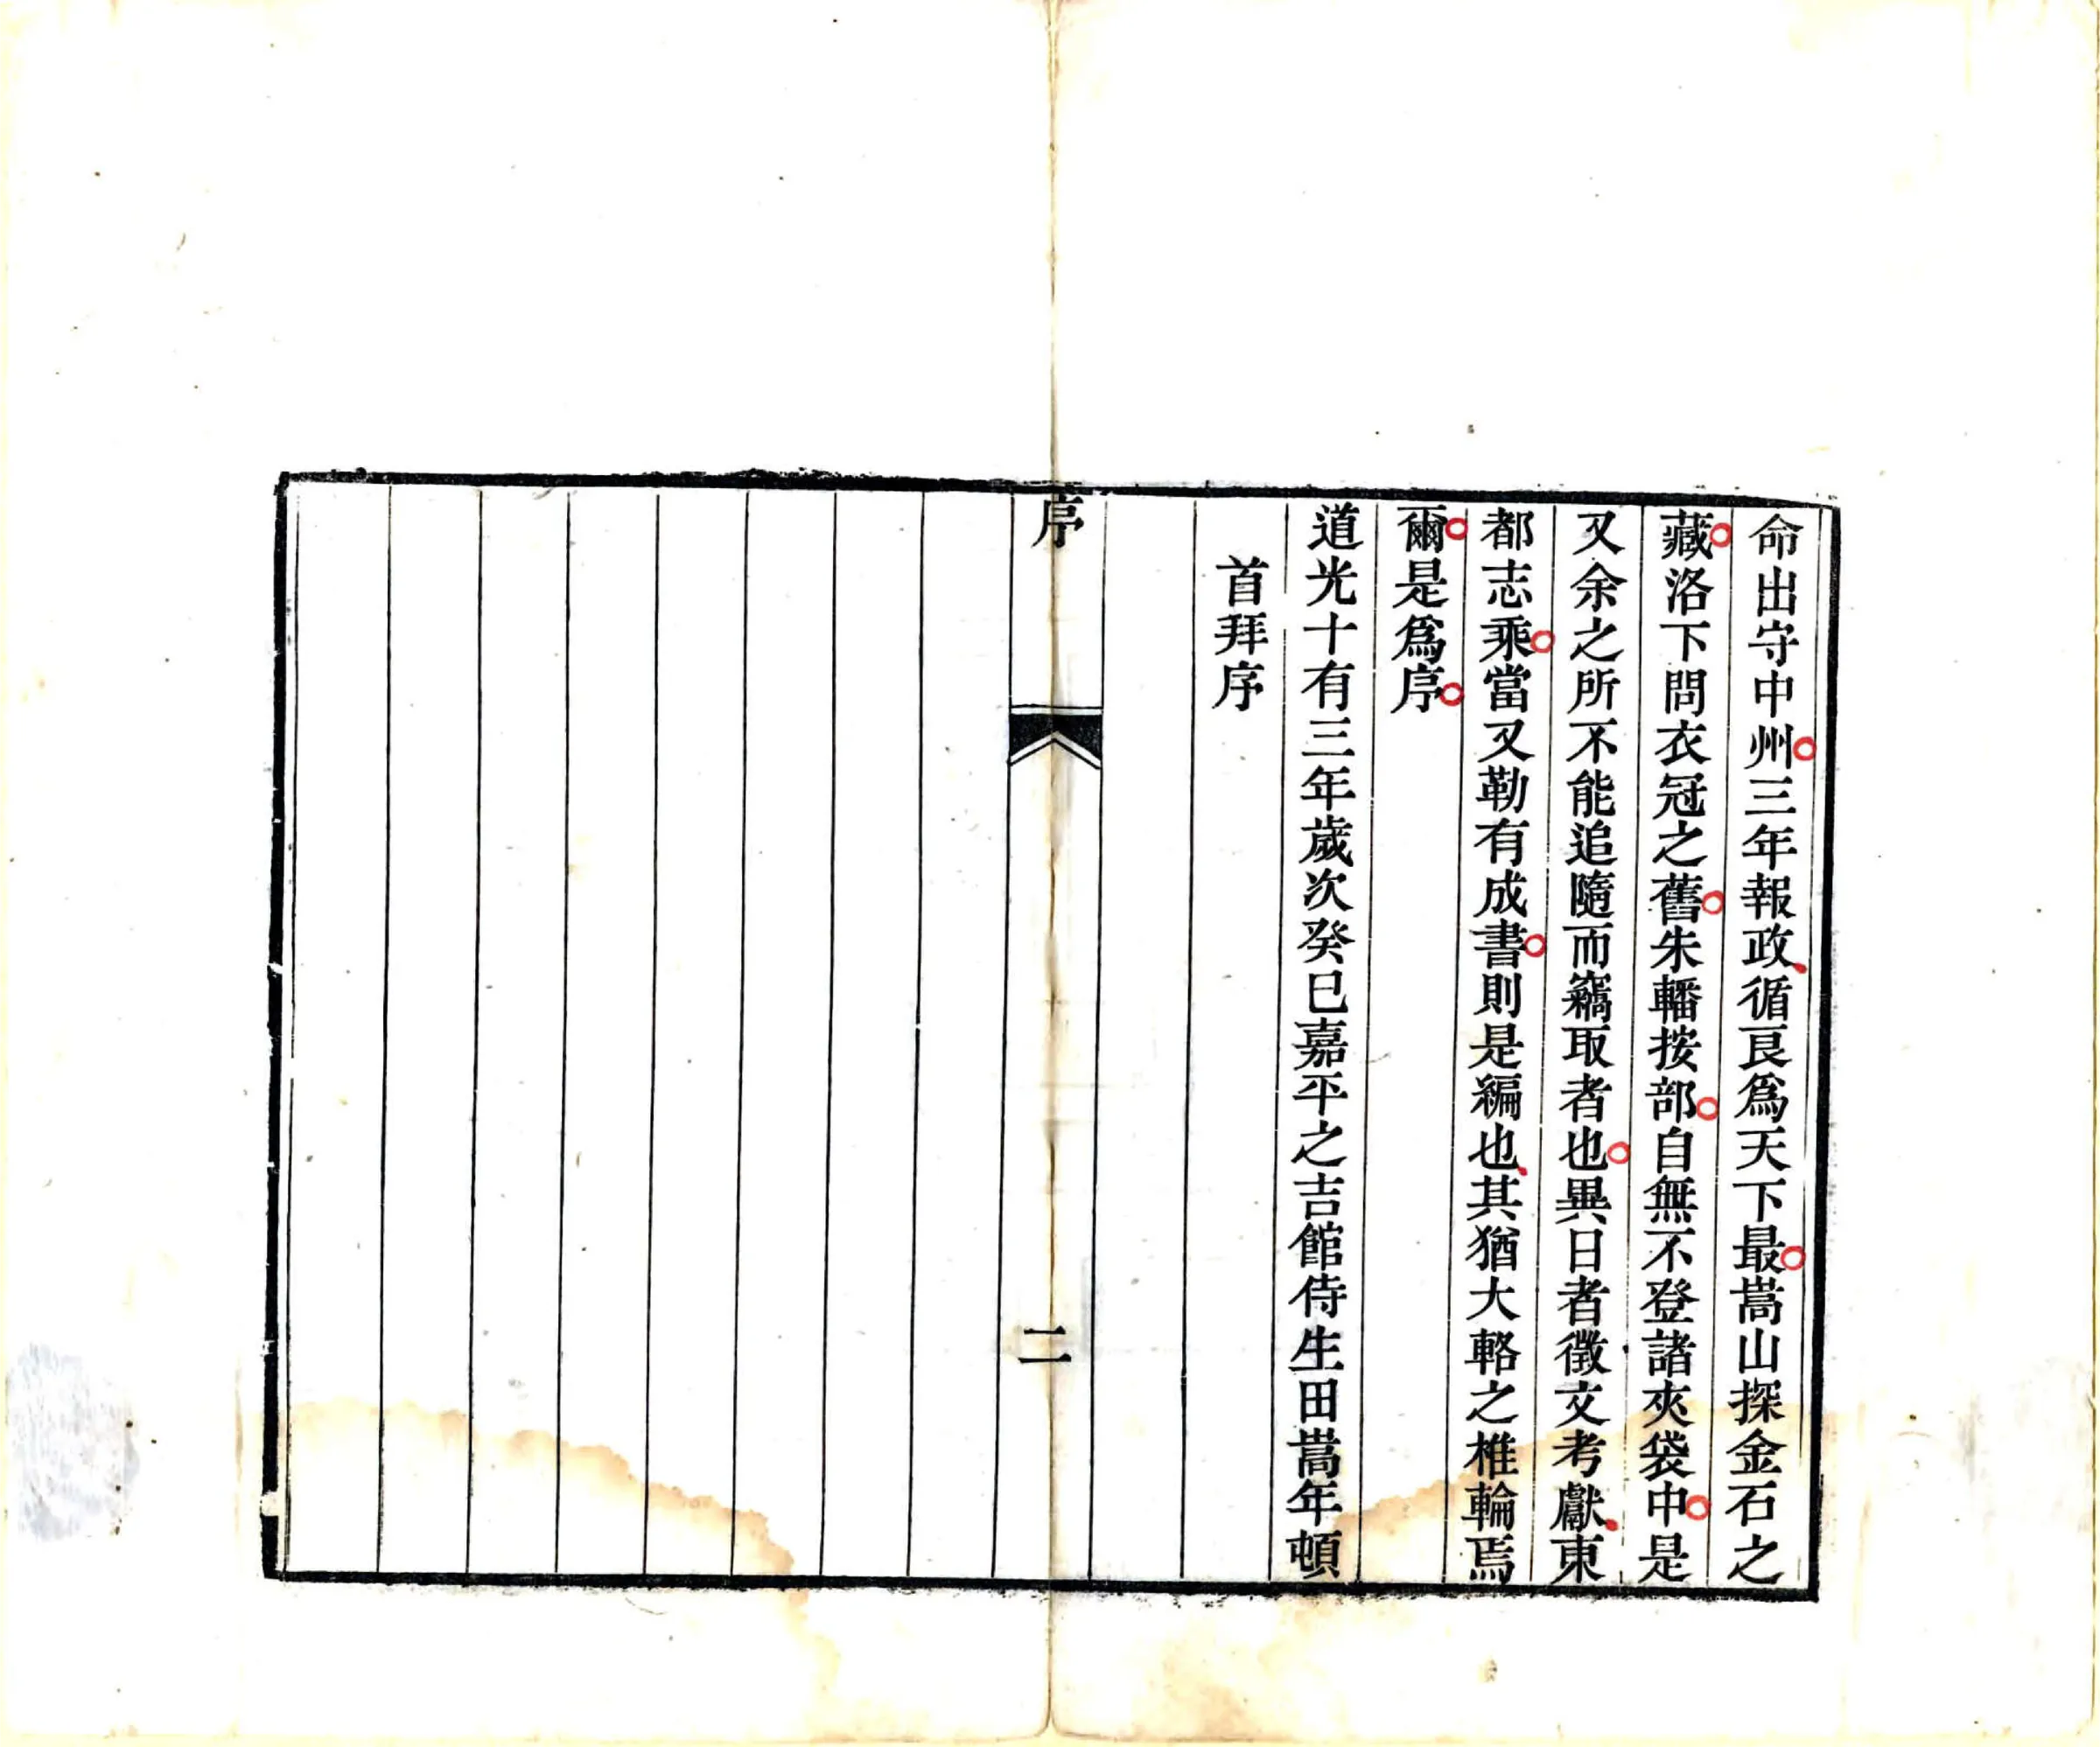 命出守中州三年報政循良爲天下最嵩山探金石之
藏洛下問衣冠之舊朱轓按部自無不登諸夾袋中是
又余之所不能追隨而竊取者也異日者徵文考獻東
都志乘當又勒有成書則是編也其猶大輅之椎輪焉
爾是爲序
道光十有三年歲次癸巳嘉平之吉館侍生田嵩年頓
首拜序
序
二